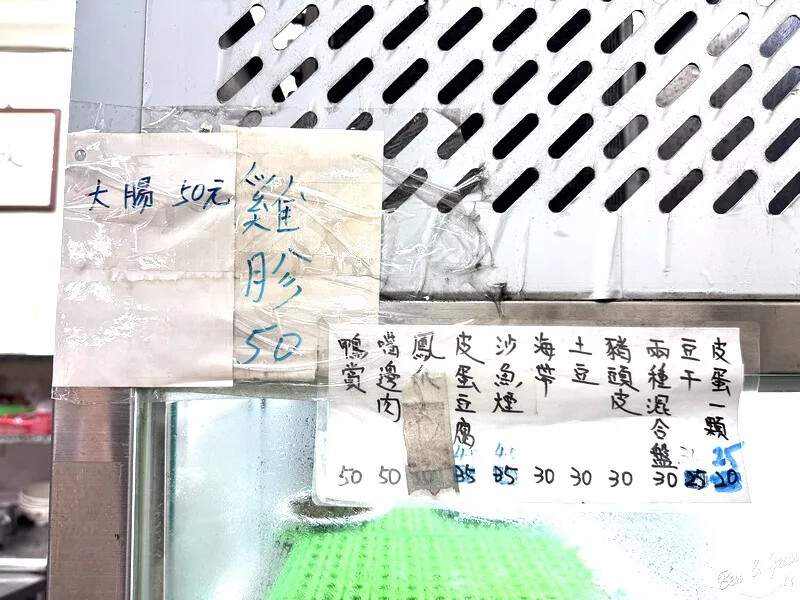 大腸 50元
雞胗 50
皮蛋一顆 25
豆干
兩種混合盤 30
豬頭皮 30
土豆 30
海帶 30
沙魚煙 45
皮蛋豆腐 45
鳳
嘴邊肉 50
鴨賞 50